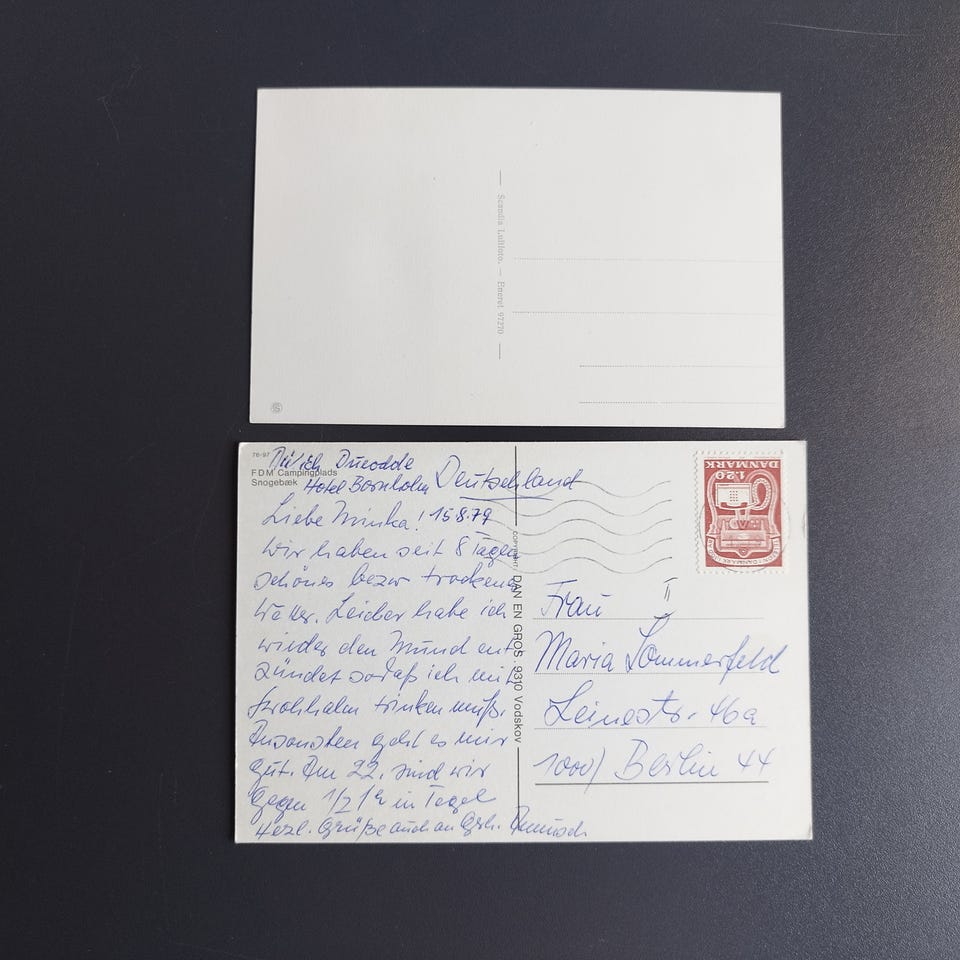 Scandia Luftfoto. — Eneret 97270
76-97
FDM Campingplads
Snogebæk
Dueodde
Hotel Bornholm Deutschland
Liebe Minka! 15.8.79
Wir haben seit 8 Tagen
schönes bezw trockenes
Wetter. Leider habe ich
wieder den Mund ent
zündet sodaß ich mit
Strohhalm trinken muß.
Ansonsten geht es mir
gut. Am 22. sind wir
gegen 1/2 in Tegel
Herzl. Grüße auch an
COPYRIGHT: DAN EN GROS . 9310 Vodskov
DANMARK
120
Frau
Maria Sommerfeld
Leinestr. 46a
1000) Berlin 44